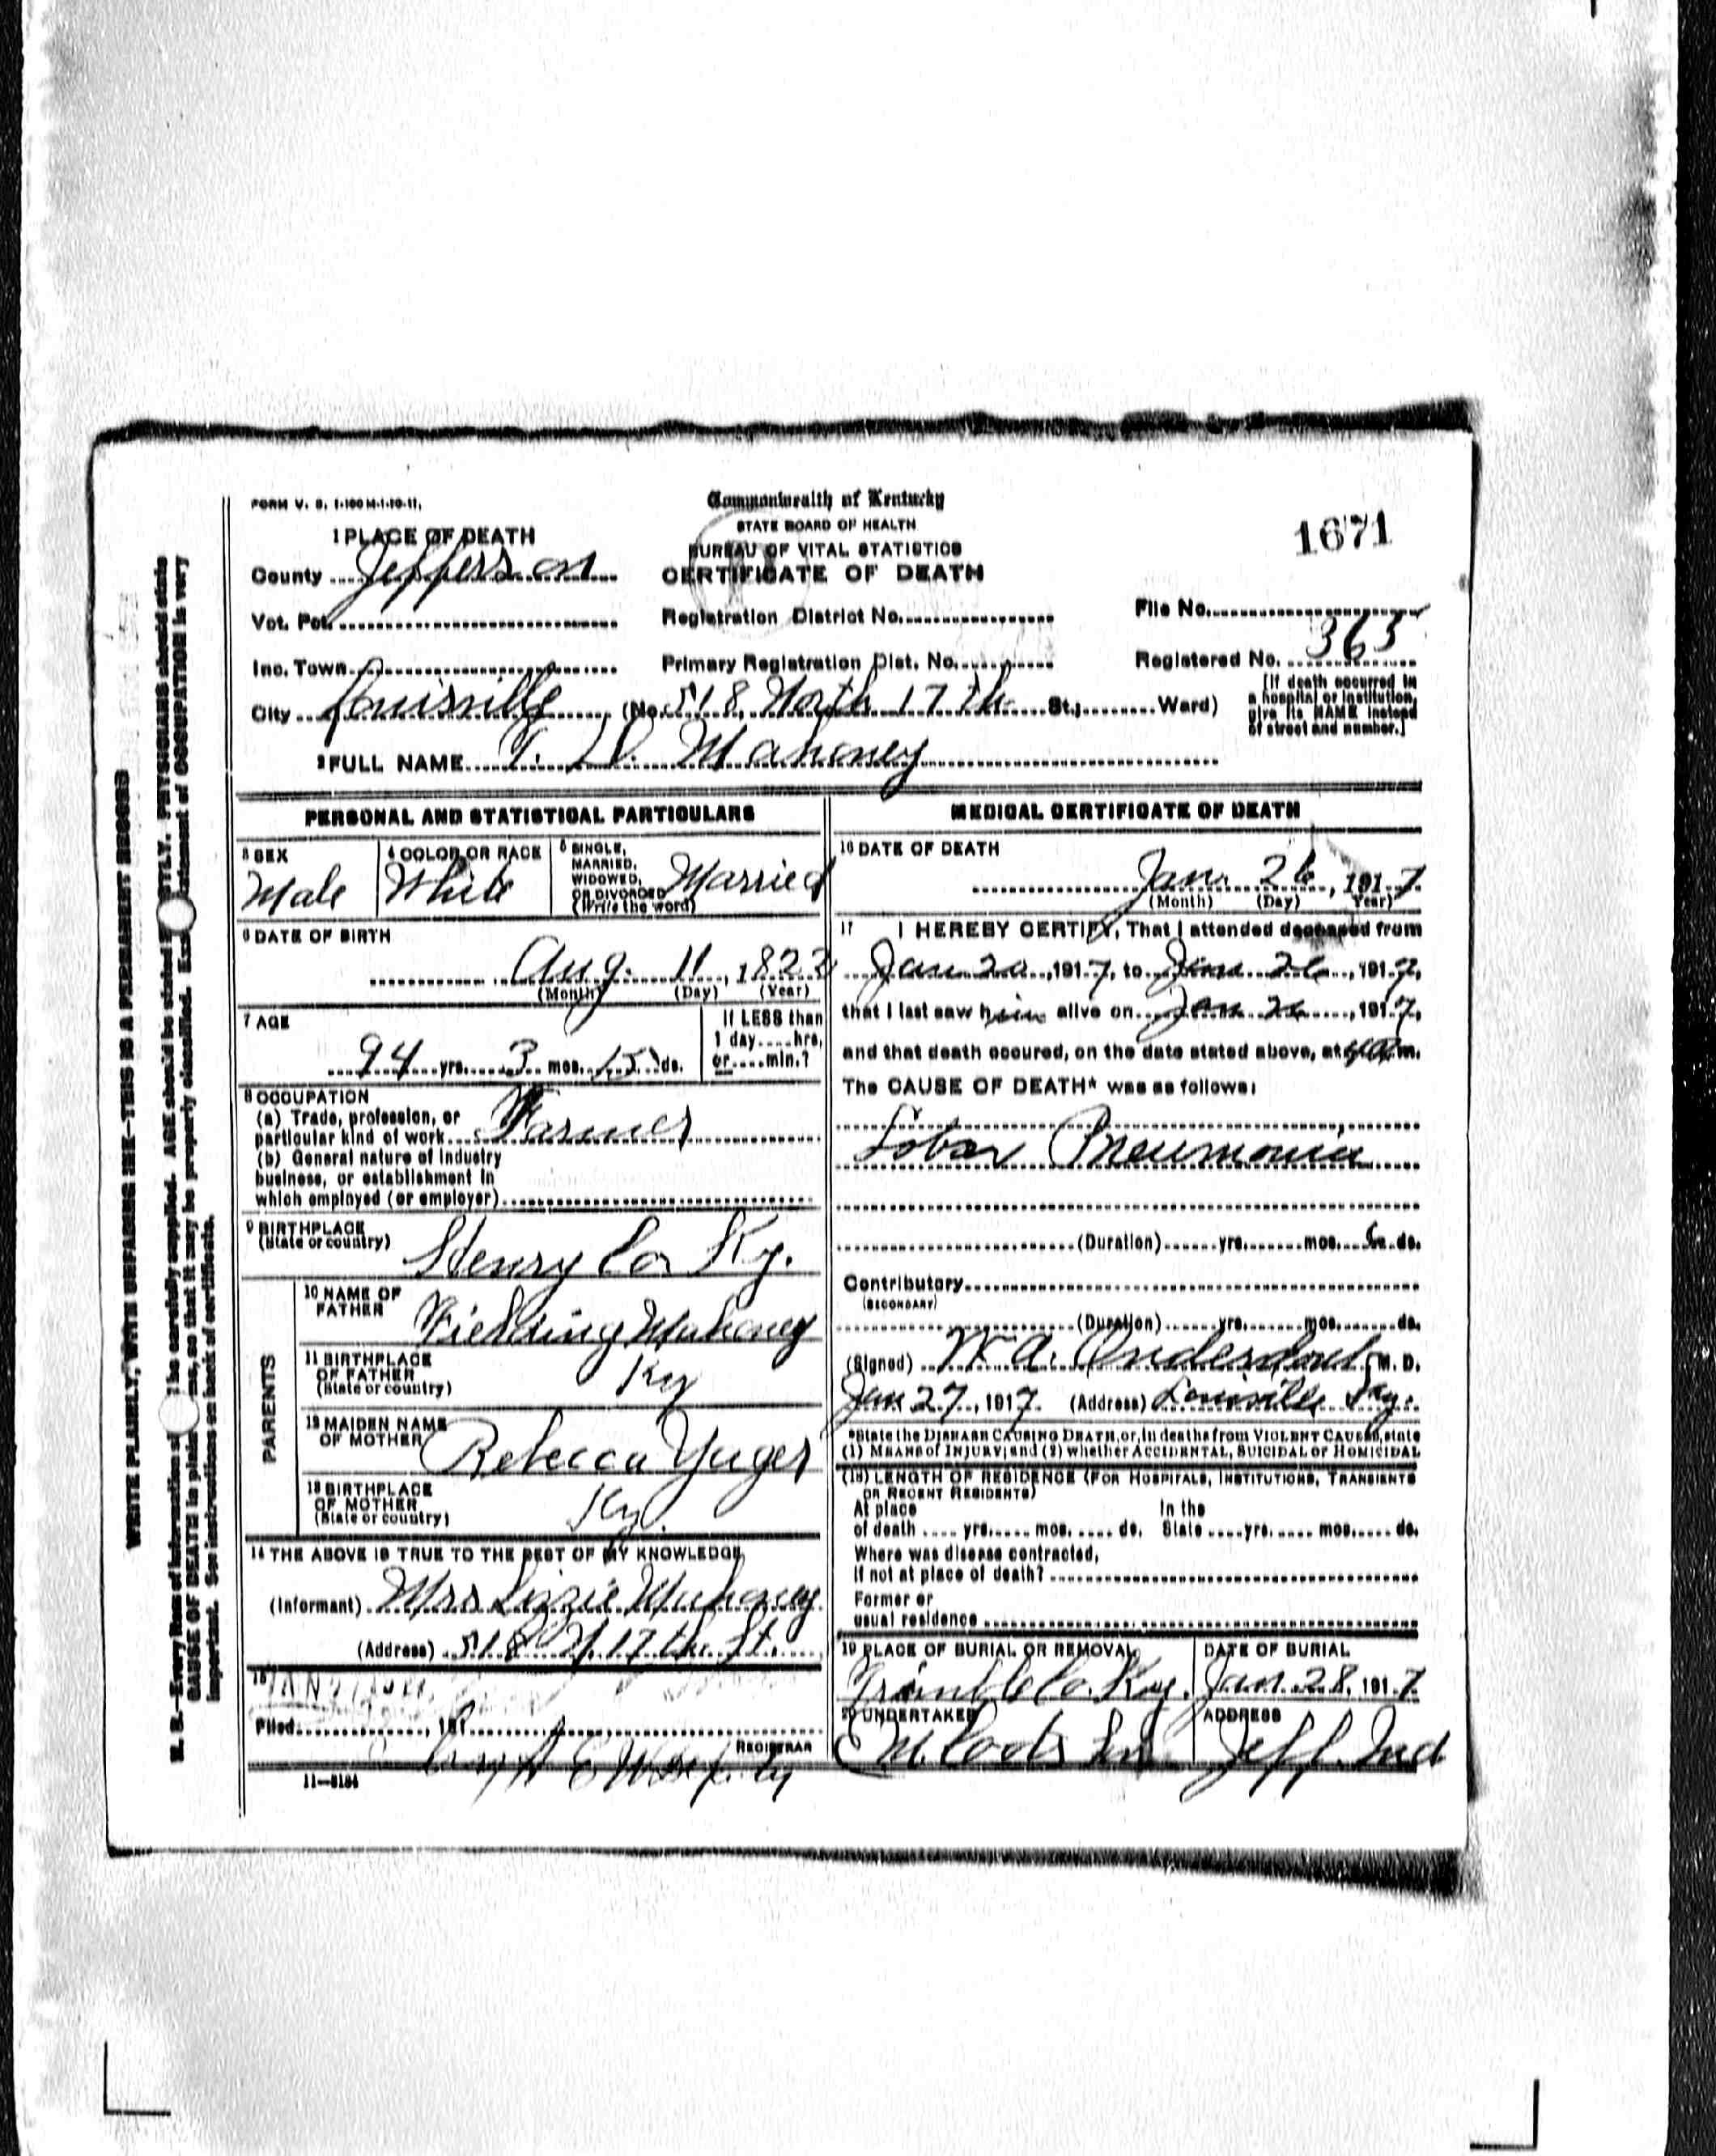 FORM V. S. 1-100 M-1-10-11.
Commonwealth of Kentucky
STATE BOARD OF HEALTH
BUREAU OF VITAL STATISTICS
CERTIFICATE OF DEATH
1671
1 PLACE OF DEATH
County Jefferson
Vot. Pct.
Registration District No.
File No.
Inc. Town
Primary Registration Dist. No.
Registered No. 363
City Louisville (No. 518 North 17th St.; Ward)
[If death occurred in
a hospital or institution,
give its NAME instead
of street and number.]
2 FULL NAME Mahoney
PERSONAL AND STATISTICAL PARTICULARS
3 SEX
Male
4 COLOR OR RACE
White
5 SINGLE,
MARRIED,
WIDOWED,
OR DIVORCED
(Write the word)
Married
6 DATE OF BIRTH
Aug. 11, 1822
(Month) (Day) (Year)
7 AGE
94 yrs. 3 mos. 15 ds.
If LESS than
1 day....hrs.
or....min.?
8 OCCUPATION
(a) Trade, profession, or
particular kind of work Farmer
(b) General nature of industry
business, or establishment in
which employed (or employer)
9 BIRTHPLACE
(State or country)
Henry Co Ky.
PARENTS
10 NAME OF
FATHER
Fielding Mahoney
11 BIRTHPLACE
OF FATHER
(State or country)
Ky
12 MAIDEN NAME
OF MOTHER
Rebecca Yuger
13 BIRTHPLACE
OF MOTHER
(State or country)
Ky.
14 THE ABOVE IS TRUE TO THE BEST OF MY KNOWLEDGE
(Informant) Mrs Lizzie Mahoney
(Address) 518 N. 17th St.
15
Filed, 191
REGISTRAR
11-3184
MEDICAL CERTIFICATE OF DEATH
16 DATE OF DEATH
Jan. 26, 1917
(Month) (Day) (Year)
17 I HEREBY CERTIFY, That I attended deceased from
Jan 20, 1917, to Jan 26, 1917,
that I last saw him alive on Jan 26, 1917,
and that death occured, on the date stated above, at m.
The CAUSE OF DEATH* was as follows:
Lobar Pneumonia
(Duration) yrs. mos. 6 ds.
Contributory
(SECONDARY)
(Duration) yrs. mos. ds.
(Signed) W. A. M. D.
Jan 27, 1917. (Address) Louisville Ky.
*State the DISEASE CAUSING DEATH, or, in deaths from VIOLENT CAUSES, state
(1) MEANS of INJURY; and (2) whether ACCIDENTAL, SUICIDAL or HOMICIDAL
(18) LENGTH OF RESIDENCE (FOR HOSPITALS, INSTITUTIONS, TRANSIENTS
OR RECENT RESIDENTS)
At place In the
of death .... yrs. .... mos. .... ds. State .... yrs. .... mos. .... ds.
Where was disease contracted,
If not at place of death?
Former or
usual residence
19 PLACE OF BURIAL OR REMOVAL
Trimble Co. Ky.
DATE OF BURIAL
Jan. 28, 1917.
20 UNDERTAKER
ADDRESS
Jeff. Ind
WRITE PLAINLY, WITH UNFADING INK—THIS IS A PERMANENT RECORD
N. B.—Every item of information be carefully supplied. AGE should be stated PHYSICIANS should state
CAUSE OF DEATH in plain so that it may be properly classified. statement of OCCUPATION is very
important. See instructions on back of certificate.